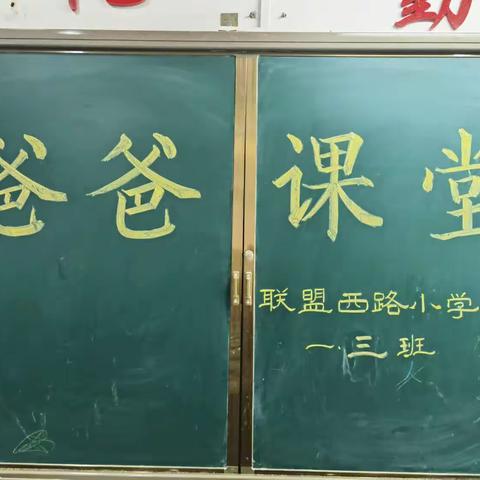 爸爸课堂
联盟西路小学
一.三班